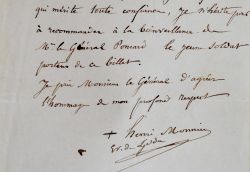 qui mérite toute confiance. Je n'hésite pas
à recommander à la bienveillance de
Mr le Général Poncard le jeune soldat
porteur de ce billet.
Je prie Monsieur le Général d'agréer
l'hommage de mon profond respect
+ Henri Monnier
Ev. de Lydda